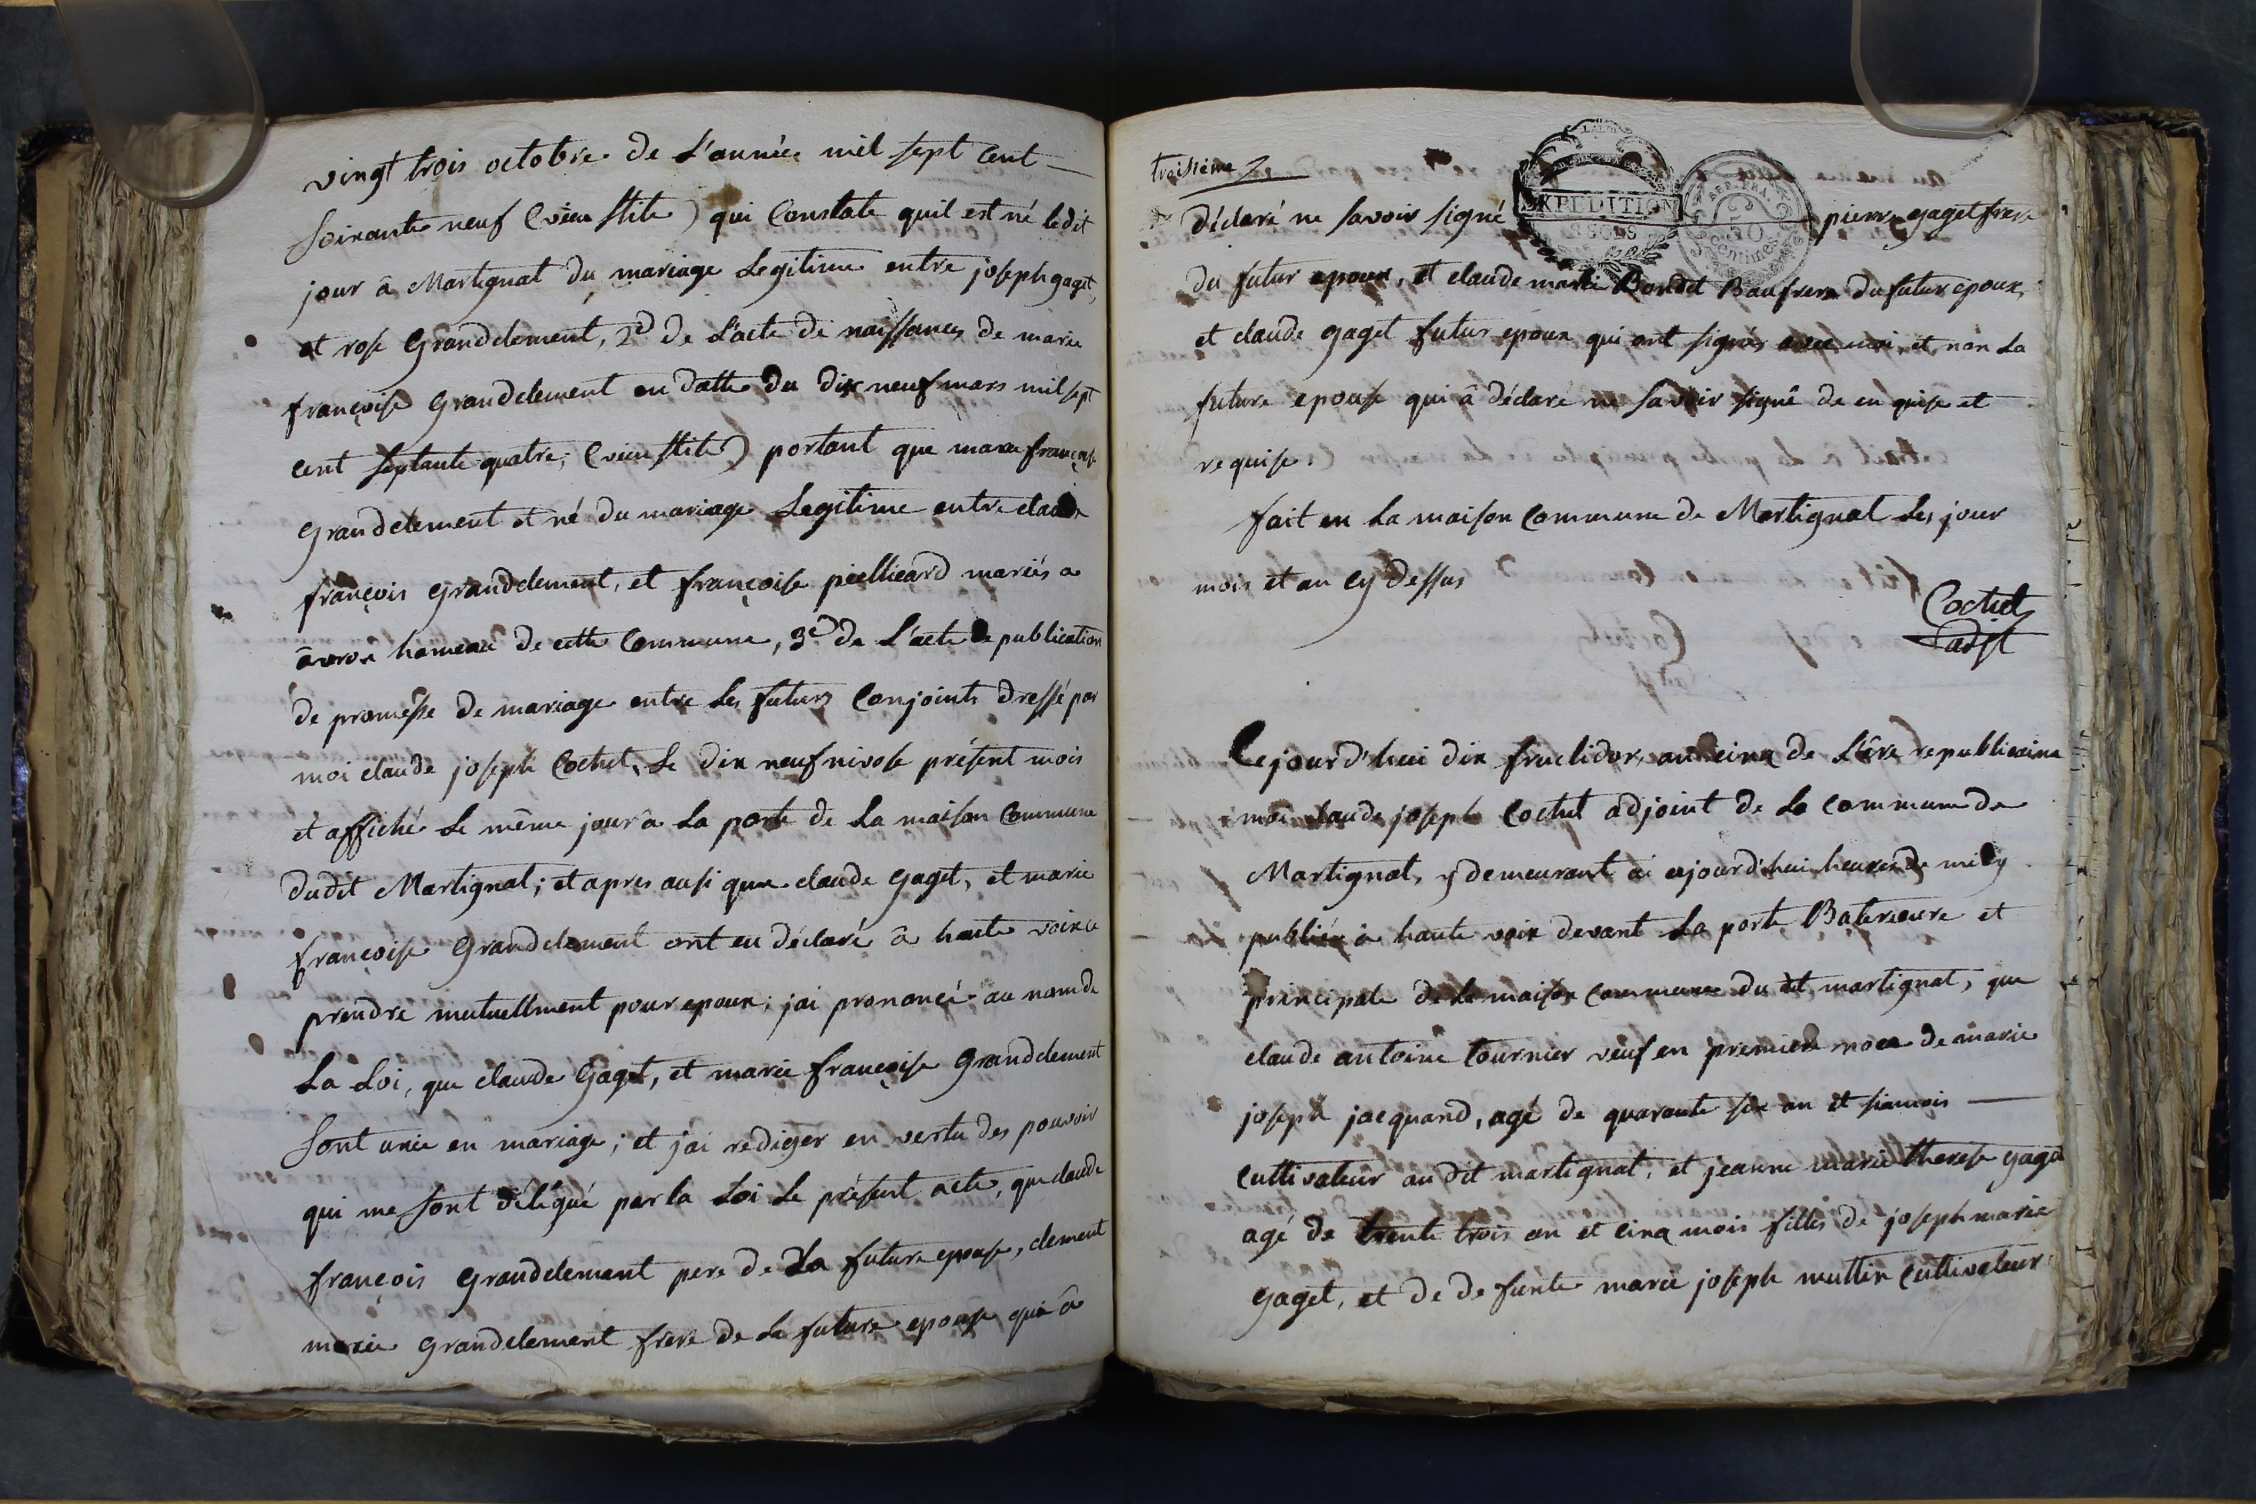 vingt trois octobre de L'année mil sept Cent
soixante neuf (vieu stile) qui Constate quil est né ledit
jour â Martignat du mariage Legitime entre joseph gaget,
et rose Grandclement, 2d de L'acte de naissances de marie
françoise Grandclement en datte du dix neuf mars mil sept
cent septante quatre, (vieu stile) portant que marie françoise
grandclement et né du mariage Legitime entre claude
françois grandclement, et françoise pielliard mariés a
hameau de cette Commune, 3e de L'acte de publication
de promesse de mariage entre Les futurs Conjoints dressé par
moi claude joseph Cochet, Le dix neuf nivose présent mois
et affiché Le même jour â La porte de La maison Commune
dudit Martignat; et apres ausi que claude gaget, et marie
françoise Grandclement ont eu déclaré â haute voix ce
prendre mutuellment pour epoux; jai prononcé au nom de
La Loi, que claude Gaget, et marie françoise Grandclement
Sont unie en mariage; et j'ai rediger en vertu des pouvoir
qui me sont délégué par la Loi Le présent acte, que claude
françois grandclement pere de La future epouse, clement
marie grandclement frere de La future epouse qui â
troisieme
déclaré ne savoir signé
EXPEDITION
REP. FRA.
50
Centimes
pierre gaget frere
du futur epoux, et claude marie Bondet Baufrere du futur epoux,
et claude gaget futur epoux qui ont signés avec moi, et non La
future epouse qui â déclaré ne savoir signé de en quise et
requise.
fait en La maison Commune de Martignat Les jour
mois et an cy dessus
Cochet
adjt
Cejourd'hui dix fructidor, an cinq de L'ère republicaine
moi claude joseph Cochet adjoint de La commune de
Martignat, y demeurant ai ajourd'hui heures de midy
publiée â haute voix devant La porte et
principale de La maison Commune du dit martignat, que
claude antoine tournier veuf en premiere noce de marie
joseph jacquand, agé de quarante six an et siamois
Cultivateur au dit martignat, et jeanne marie therese gaget
agé de trente trois an et cinq mois filles de joseph marie
gaget, et de defunte marie joseph muttin Cultivateur